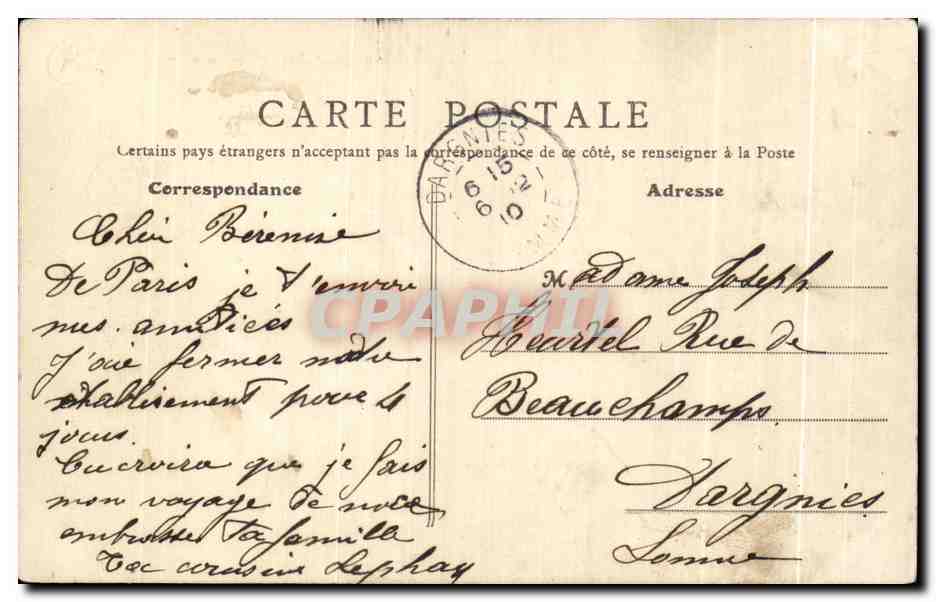 CARTE POSTALE
Certains pays étrangers n'acceptent pas la correspondance de ce côté, se renseigner à la Poste
Correspondance
Chèr Bérenise
De Paris je t'envoi
mes amitiés
J'ai fermer notre
établisement pour 4
jours.
tu croira que je fais
mon voyage de noce
embrasse ta famille
Ta cousine
DARGNIES
6 15
6 12
10
SOMME
Adresse
Madame Joseph
Heurtel Rue de
Beauchamps
Dargnies
Somme
CPAPHIL